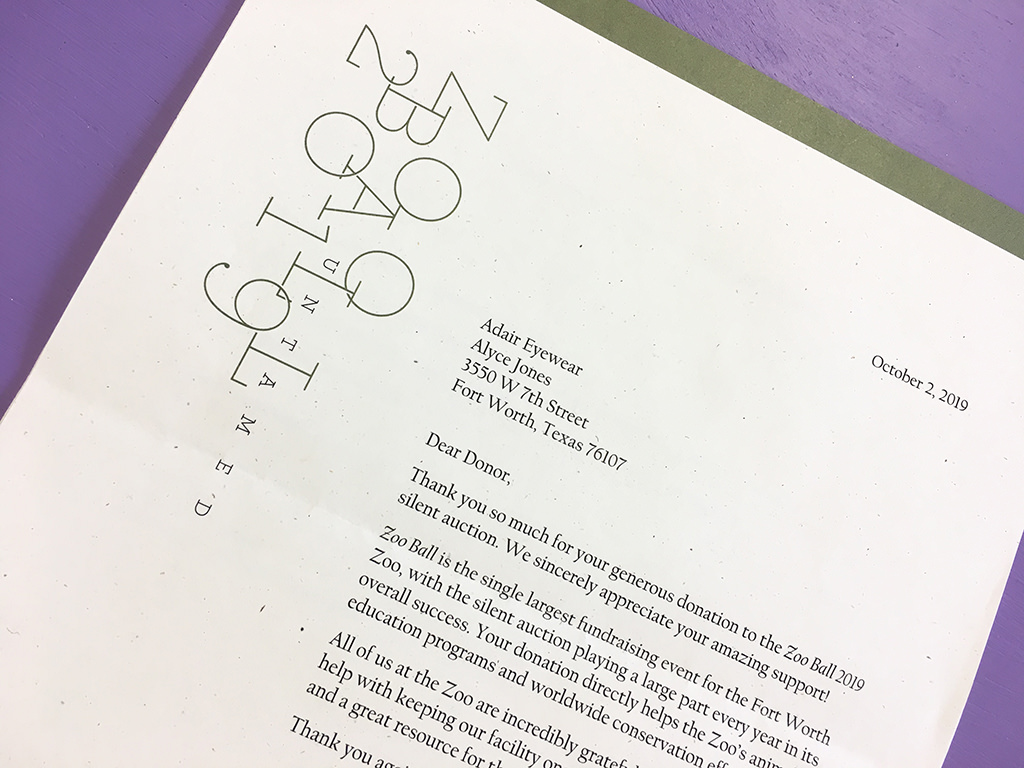 ZOO
BALL
2019
UNTAMED
October 2, 2019
Adair Eyewear
Alyce Jones
3550 W 7th Street
Fort Worth, Texas 76107
Dear Donor,
Thank you so much for your generous donation to the Zoo Ball 2019
silent auction. We sincerely appreciate your amazing support!
Zoo Ball is the single largest fundraising event for the Fort Worth
Zoo, with the silent auction playing a large part every year in its
overall success. Your donation directly helps the Zoo's
education programs and worldwide conservation
All of us at the Zoo are incredibly
help with keeping our facility
and a great resource for
Thank you